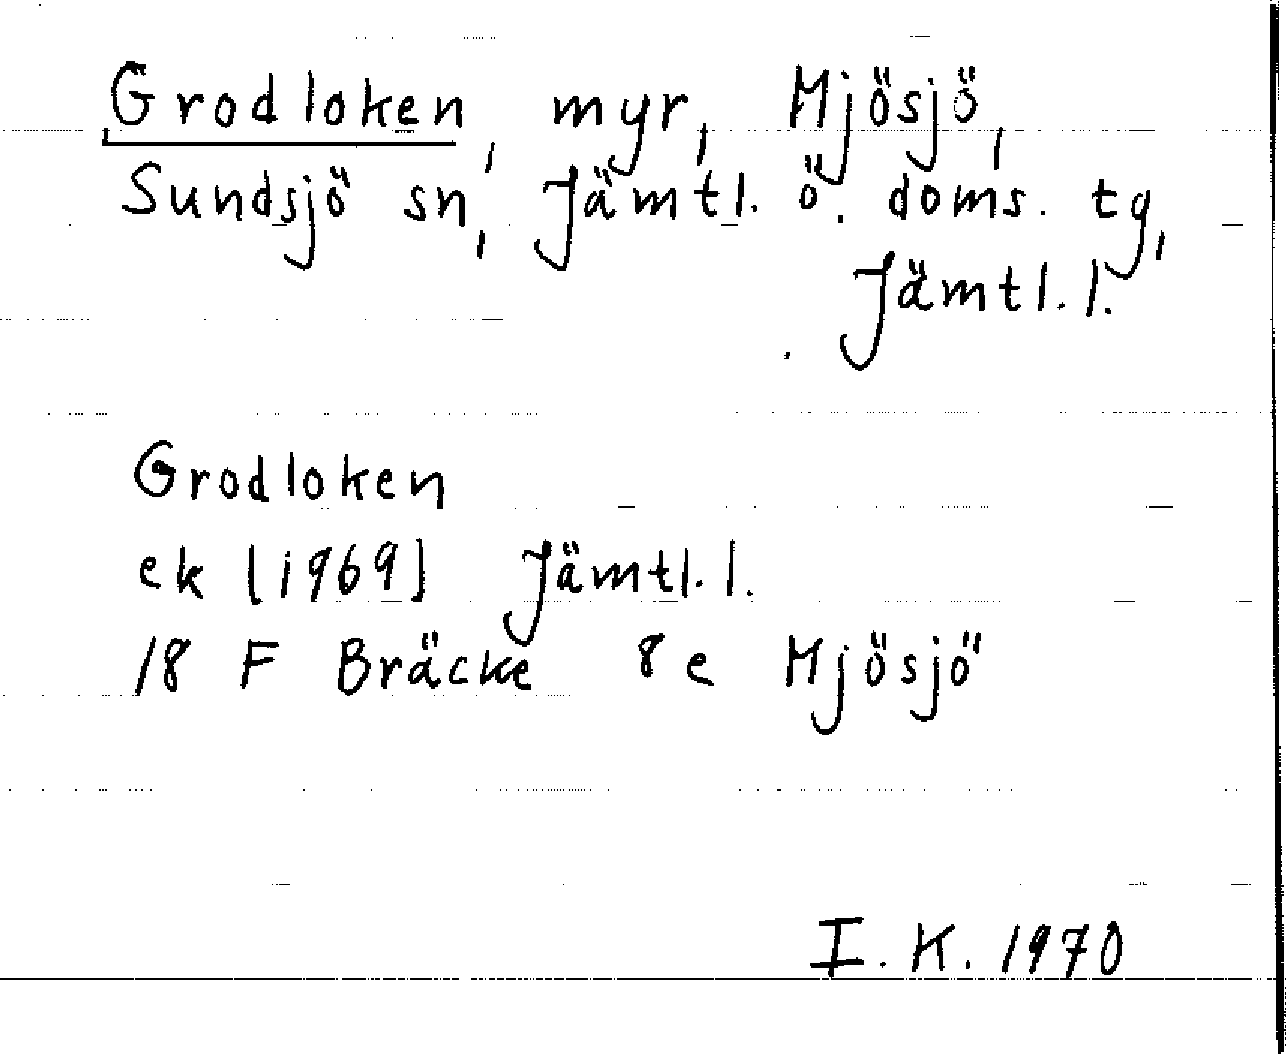 Grodloken, myr, Mjösjö,
Sundsjö sn, Jämtl. ö. doms. tg,
Jämtl. l.
Grodloken
ek [1969] Jämtl. l.
18 F Bräcke 8e Mjösjö
I. K. 1970